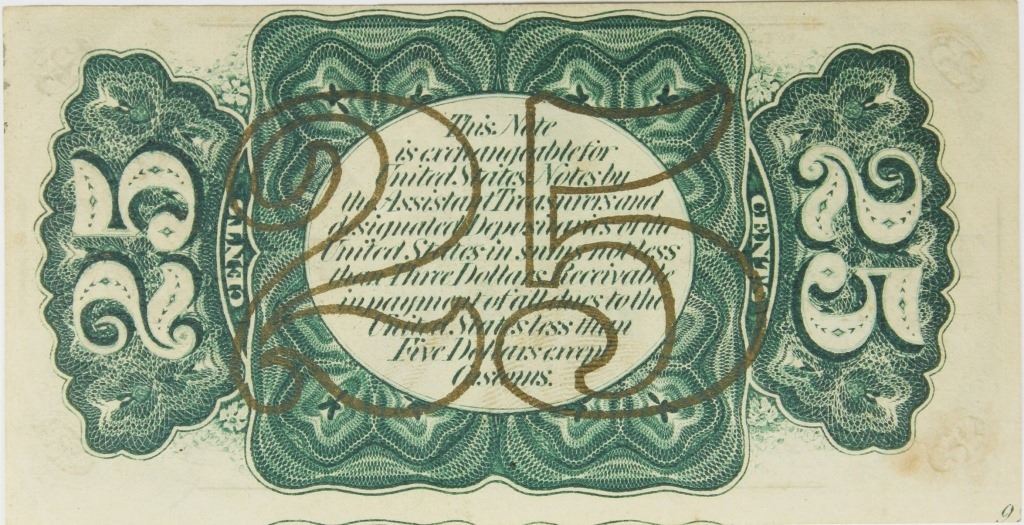 This Note
is exchangeable for
United States Notes by
the Assistant Treasurers and
designated Depositaries of the
United States in sums not less
than Three Dollars. Receivable
in payment of all dues to the
United States less than
Five Dollars except
Customs.
25
25
25
CENTS